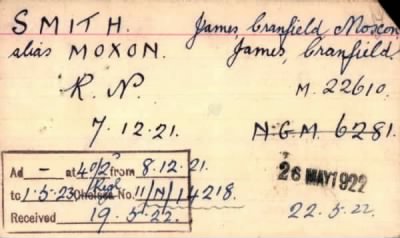 SMITH. James Cranfield Moxon
alias MOXON. James, Cranfield
R. N. M. 22610.
7.12.21. N.G.M. 6281.
Ad — at 40/2ᵈ from 8.12.21.
to 1.5.23 Chelsea No. 11/N/14218.
Received 19.5.22.
26 MAY 1922
22.5.22.